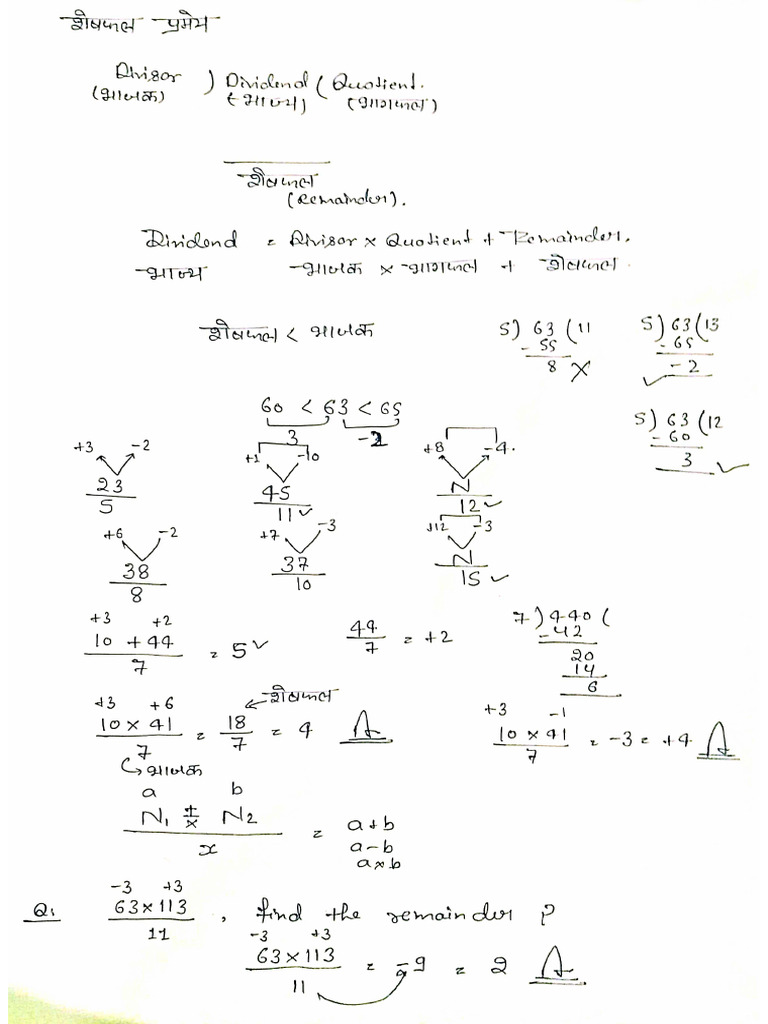 शेषफल प्रमेय
Divisor ) Dividend ( Quotient.
(भाजक) (भाज्य) (भागफल)
शेषफल
(Remainder).
Dividend = Divisor × Quotient + Remainder.
भाज्य भाजक × भागफल + शेषफल.
शेषफल < भाजक
5) 63 (11
- 55
8 ×
5) 63 (13
- 65
- 2
5) 63 (12
- 60
3
60 < 63 < 65
3 -2
+3 -2
23
5
+1 -10
45
11
+8 -4.
N
12
+6 -2
38
8
+7 -3
37
10
+12 -3
N
15
+3 +2
10 + 44
7
= 5
44
7
= +2
7 ) 440 (
- 42
20
14
6
+3 +6 शेषफल
10 × 41 = 18 = 4 A
7 7
भाजक
+3 -1
10 × 41 = -3 = +4 A
7
a b
N1 ± × N2 = a+b
x a-b
a×b
Q: -3 +3
63×113 , find the remainder ?
11
-3 +3
63×113 = -9 = 2 A
11